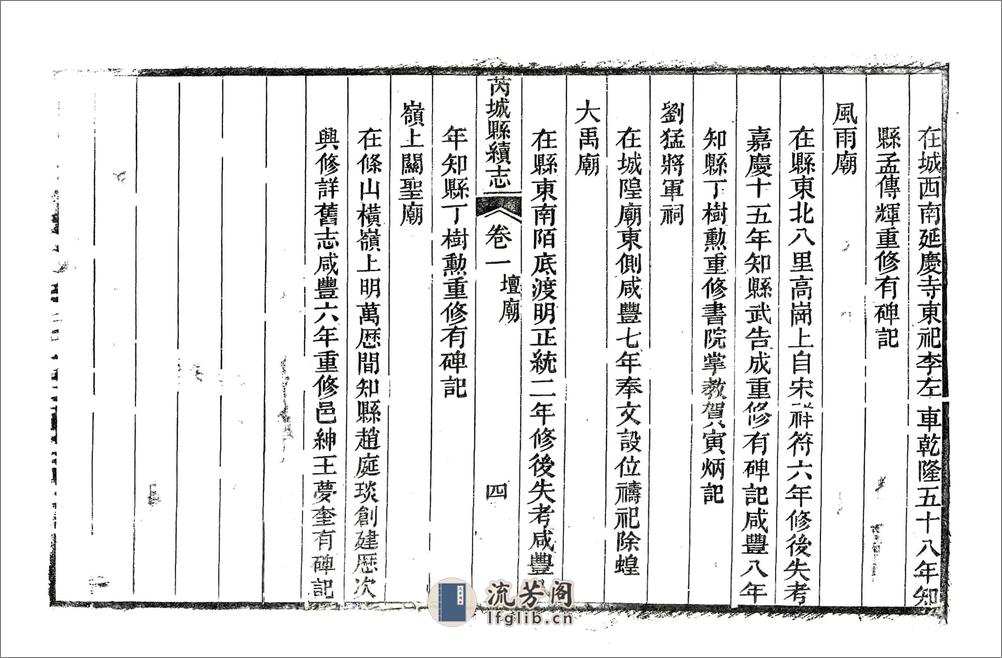 在城西南延慶寺東祀李左車乾隆五十八年知
縣孟傳輝重修有碑記
風雨廟
在縣東北八里高崗上自宋祥符六年修後失考
嘉慶十五年知縣武告成重修有碑記咸豐八年
知縣丁樹勲重修書院掌教賀寅炳記
劉猛將軍祠
在城隍廟東側咸豐七年奉文設位禱祀除蝗
大禹廟
在縣東南陌底渡明正統二年修後失考咸豐
芮城縣續志
卷一
壇廟
四
年知縣丁樹勲重修有碑記
嶺上關聖廟
在條山橫嶺上明萬歷間知縣趙庭琰創建歷次
興修詳舊志咸豐六年重修邑紳王夢奎有碑記
流芳阁
lfglib.cn